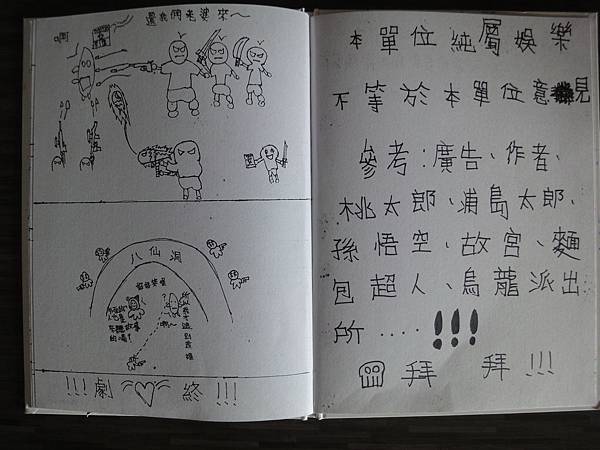 還我們老婆來～
啊
八仙洞
!!!劇 終!!!
本單位純屬娛樂
不等於本單位意見
參考：廣告、作者、
桃太郎、浦島太郎、
孫悟空、故宮、麵
包超人、烏龍派出
所‥‥!!!
拜 拜!!!